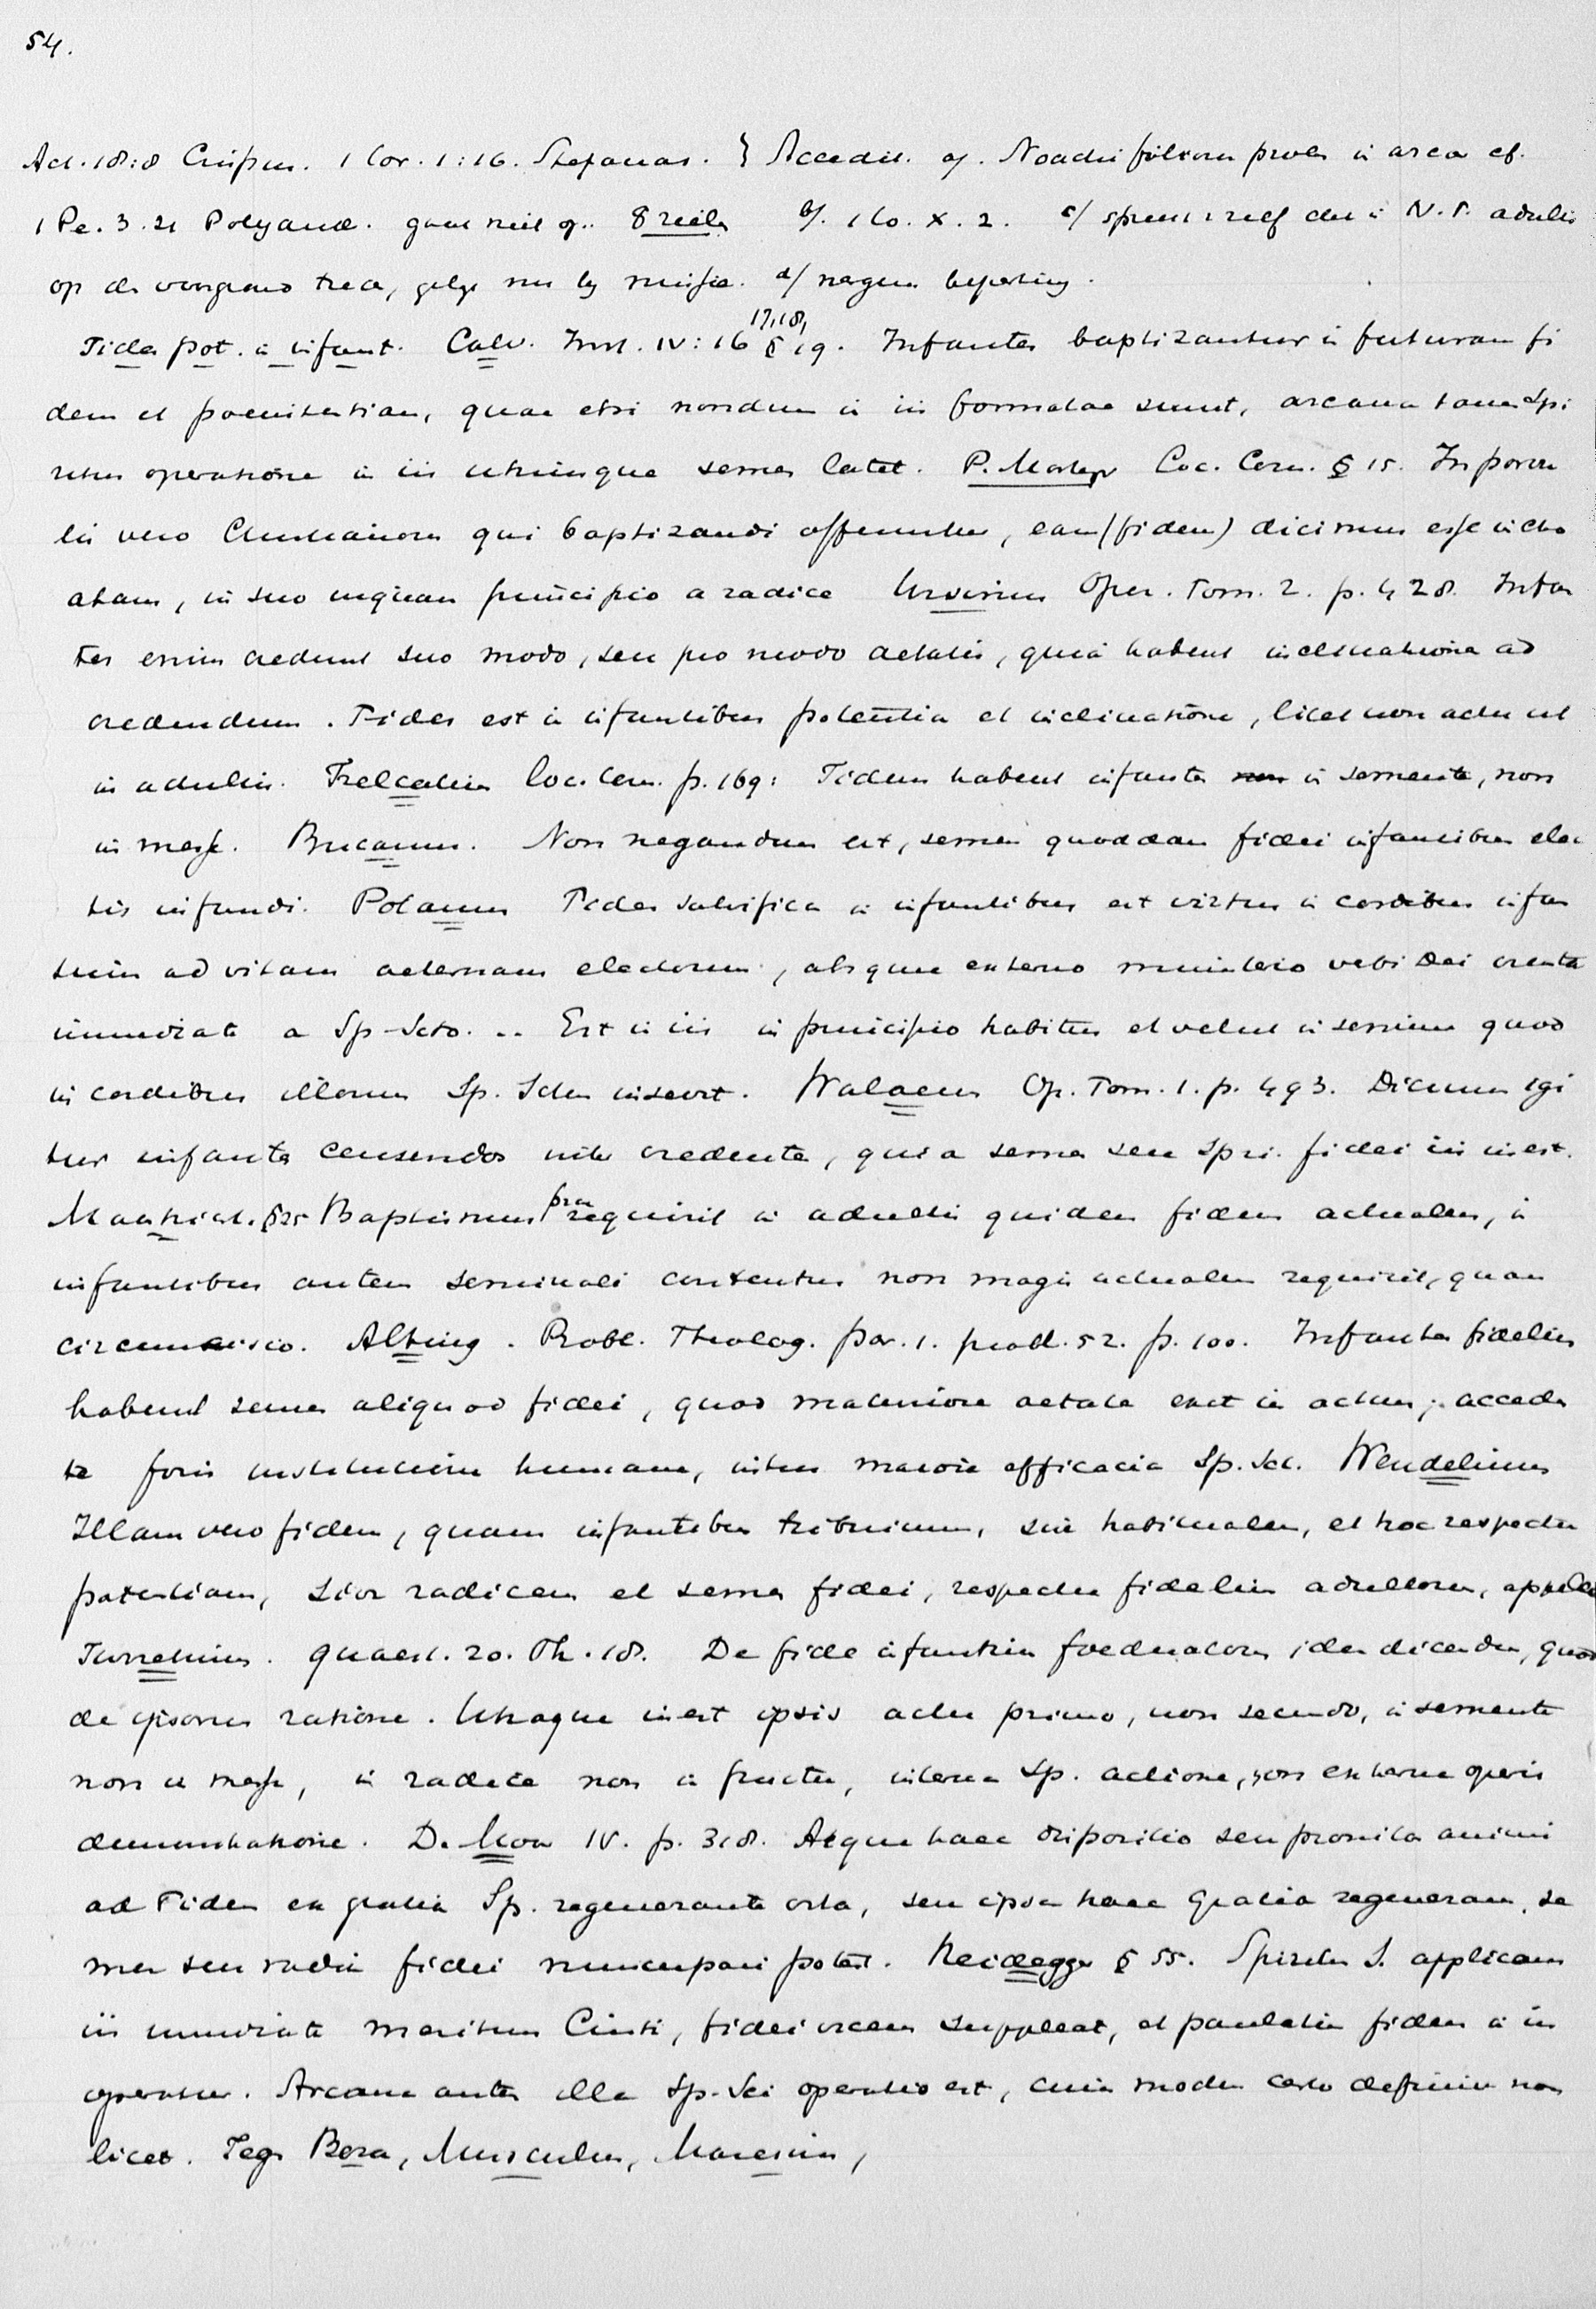 54.
Act. 18:8 Crispus. 1 Cor. 1:16. Stefanas. } Accedit. a/. Noachi filiorum proles in arca cf.
1 Pe. 3.21 Polyand. gaat niet op. 8 zielen b/. 1 Co. X. 2. c/ spreekt vzelf dat i N.T. adulti
op de voorgrond treden, gelijk nu bij missie. d/ negen beperking.
Fides pot. in infant. Calv. Inst. IV:16 17,18, § 19. Infantes baptizantur in futuram fi
dem et poenitentiam, quae etsi nondum in iis formatae sunt, arcana tamen Spi
ritus operatione in iis utriusque semen latet. P. Martyr Loc. Com. § 15. In parvu
lis vero Christianorum qui baptizandi offeruntur, eam (fidem) dicimus esse incho
atam, in suo inquam principio a radice Ursinus Oper. Tom. 2. p. 428. Infan
tes enim credunt suo modo, seu pro modo aetatis, quia habent inclinationem ad
credendum. Fides est in infantibus potentia et inclinatione, licet non actu ut
in adultis. Trelcatius loc. Com. p. 169: Fidem habent infantes non in semente, non
in messe. Bucanus. Non negandum est, semen quoddam fidei infantibus elec
tis infundi. Polanus Fides salvifica in infantibus est virtus in cordibus infan
tium ad vitam aeternam electorum, absque externo ministerio verbi Dei creata
immediate a Sp-Scto. .. Est in iis in principio habitus et velut in semine quod
in cordibus illorum Sp. Sctus inserit. Walaeus Op. Tom. 1. p. 493. Dicimus igi
tur infantes censendos inter credentes, quia semen seu Spir. fidei iis inest.
Maastricht. § 25 Baptismus prae requirit in adultis quidem fidem actualem, in
infantibus autem seminali contentus non magis actualem requirit, quam
circumcisio. Alting. Probl. Theolog. par. 1. probl. 52. p. 100. Infantes fidelium
habent semen aliquod fidei, quod maturiore aetate exit in actum, acceden
te foris institutione humana, intus maiore efficacia Sp. Sct. Wendelinus
Illam vero fidem, quam infantibus tribuimus, sive habitualem, et hoc respectu
potentiam, sive radicem et semen fidei, respectu fidelium adultorum, appelles
Turretinus. Quaest. 20. Th. 18. De fide infantium foederatorum idem dicendum, quod
de ipsorum ratione. Utraque inest ipsis actu primo, non secundo, in semente
non in messe, in radice non in fructu, interna Sp. actione, non externa operis
demonstratione. De Moor IV. p. 318. Atque haec dispositio seu pronitas animi
ad Fidem ex gratia Sp. regenerante orta, seu ipsa haec gratia regenerans, se
men seu radix fidei nuncupari potest. Heidegger § 55. Spiritus S. applicans
iis immediate meritum Christi, fidei vicem suppleat, et paulatim fidem in iis
operatur. Arcana autem illa Sp. Sci operatio est, cuius modum certo definire non
licet. Tegen Beza, Musculus, Maresius,